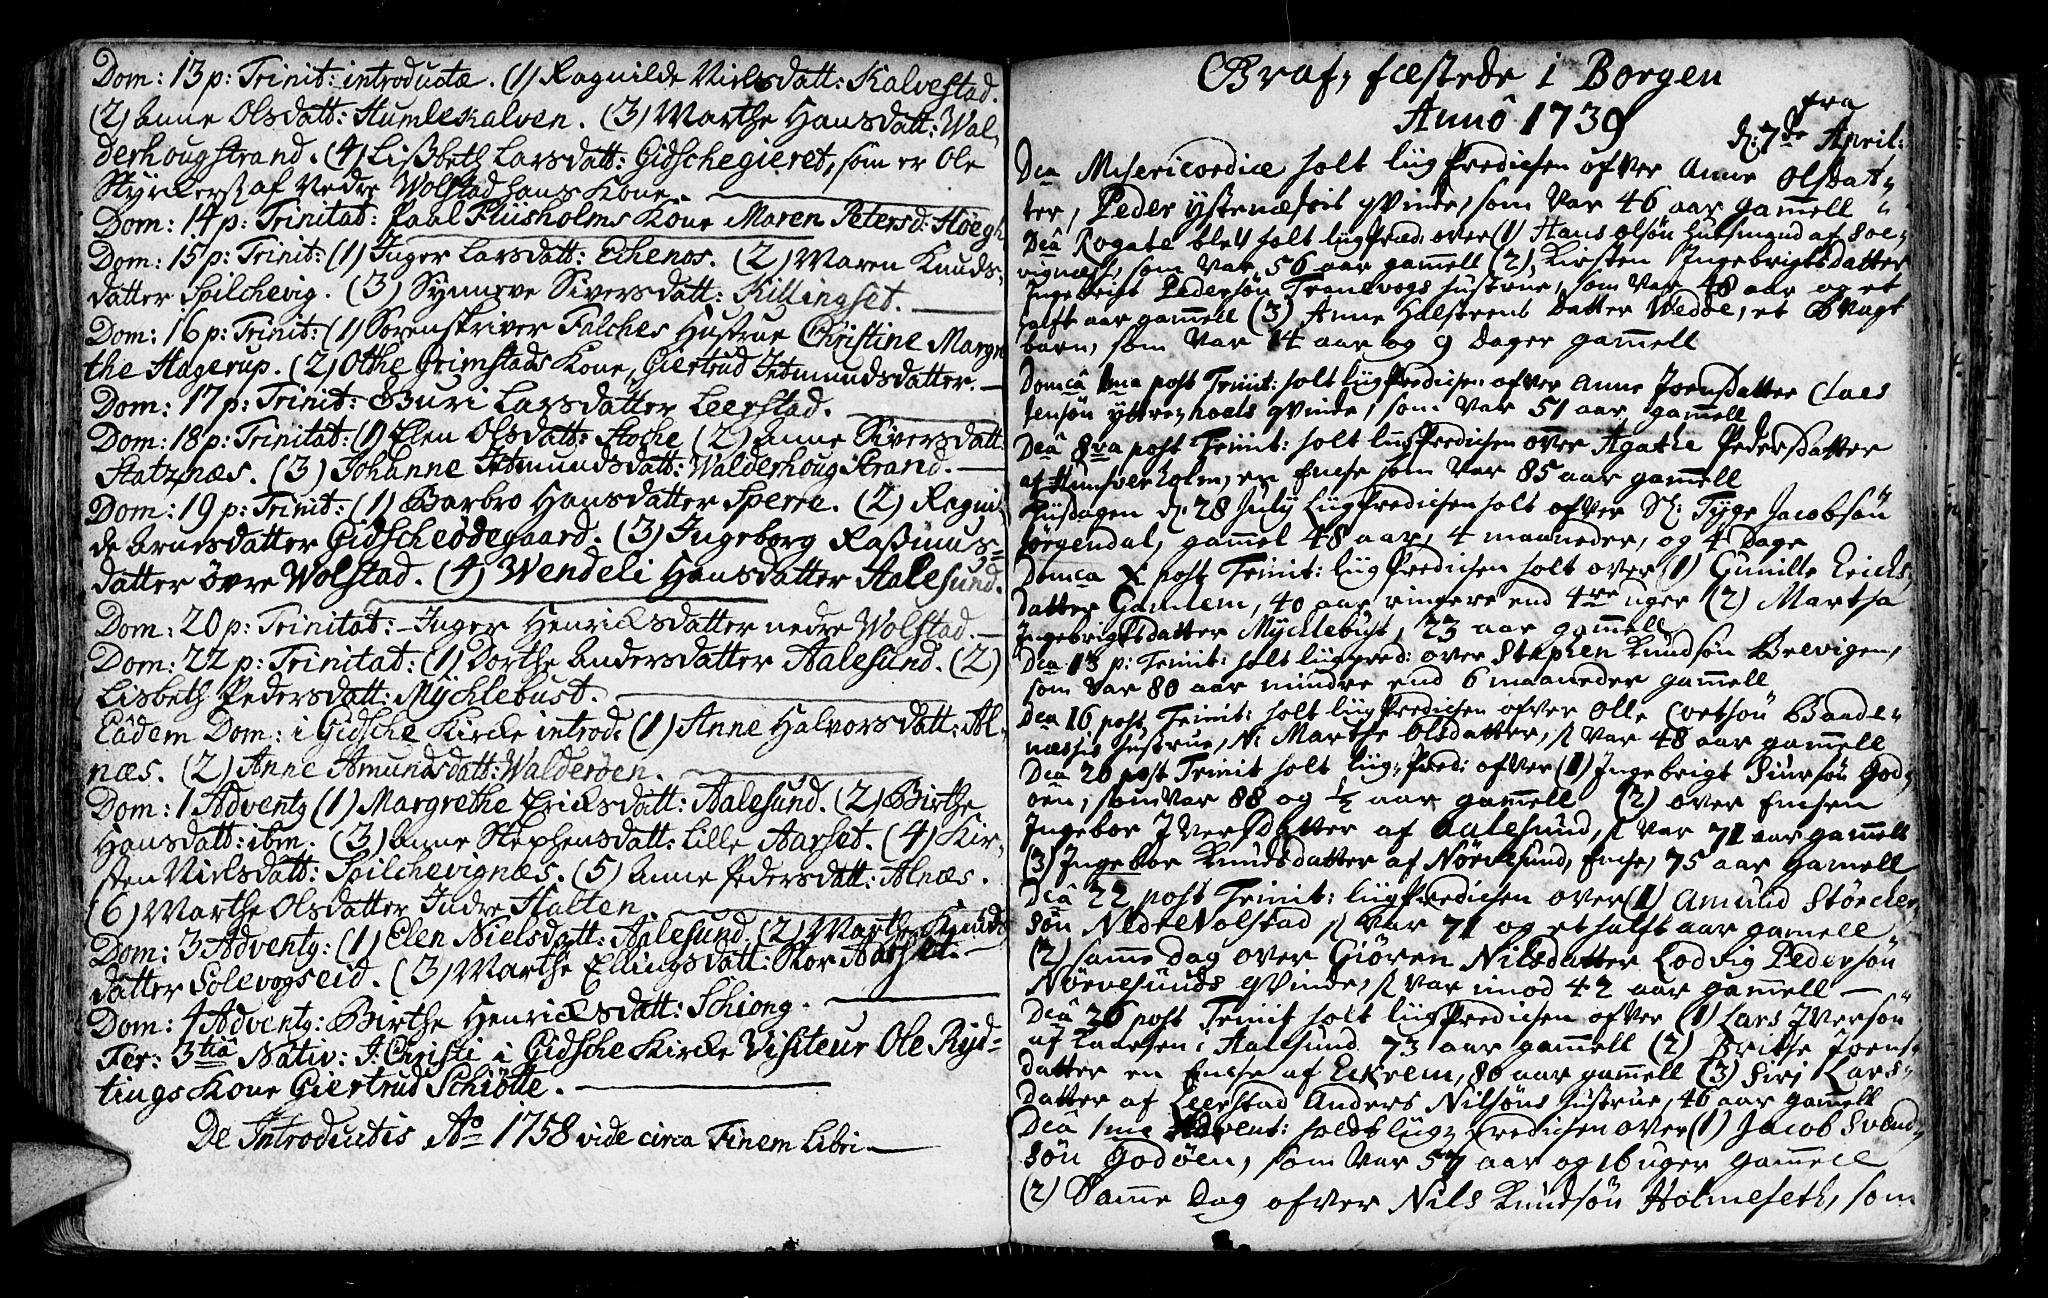 Dom: 13 p: Trinit: introductæ. (1) Ragnilde Nielsdatt: Kalvestad.
(2) Anne Olsdatt: Humlekalven. (3) Marthe Hansdatt: Wal-
derhougstrand. (4) Lißbeth Larsdatt: Gidschegieret, som er Ole
Styrckers: af Nedre Wolstad hans Kone.
Dom: 14 p: Trinitat: Paal Fliisholms Kone Maren Petersd: Høegh
Dom: 15 p: Trinit: (1) Inger Larsdatt: Echenos. (2) Maren Knuds-
datter Spilchevig. (3) Synneve Siversdatt: Killingset.
Dom: 16 p: Trinit: (1) Sorenskriver Falches Hustrue Christine Margre
the Hagerup. (2) Otthe Grimstads Kone, Giertrud Jetmundsdatter.
Dom: 17 p: Trinit: Guri Larsdatter Leerstad.
Dom: 18 p: Trinitat: (1) Elen Olsdatt: Hoche (2) Anne Siversdatt:
Statznæs. (3) Johanne Jetmundsdatt: Walderhoug Strand.
Dom: 19 p: Trinit: (1) Barbro Hansdatter Sperre. (2) Ragnil-
de Arnesdatter Gidscheødegaard. (3) Ingeborg Raßmus-
datter øvre Wolstad. (4) Wendeli Hansdatter Aalesund.
Dom: 20 p: Trinitat: Inger Henricksdatter nedre Wolstad.
Dom: 22 p: Trinitat: (1) Dorthe Andersdatter Aalesund. (2)
Lisbeth Pedersdatt: Mychlebust.
Eâdem Dom: i Gidsche Kircke introd. (1) Anne Halvorsdatt: Al-
næs. (2) Anne Amundsdatt: Walderøen.
Dom: 1 Advent, (1) Margrethe Ericksdatt: Aalesund. (2) Birthe
Hansdatt: ibm. (3) Anne Stephensdatt: Lille Aarset. (4) Kir-
sten Nielsdatt: Spilchevignæs. (5) Anne Pedersdatt: Alnæs.
(6) Marthe Olsdatter Indre Stalten
Dom: 3 Advent: (1) Elen Nielsdatt: Aalesund (2) Marthe Knuds
datter Solevogseid. (3) Marthe Ellingsdatt: Stor Aarset.
Dom: 4 Advent: Birthe Henricksdatt: Schiong.
Fer: 3tiâ Nativ: J. Christi i Gidsche Kircke Visiteur Ole Ryd-
tings Kone Giertrud Schiøtte.
De Introductis Ao 1758 vide circa Finem Libri
Graf, fæstede i Borgen
Anno 1739 fra
d: 7de April:
Dca Misericordiæ holt liigPredichen ofver Anne Olsdat-
ter, Peder ystenæsets qvinde, som var 46 aar gamell
Dcâ Rogate blev holt liigPræd: over (1) Hans olsøn huusmand af Soe-
vignæss, som var 56 aar gamell (2) Kirsten Ingebrigtsdatter
Ingebrigt Pedersøn Tranevogs hustrue, som var 48 aar og et
halft aar gamell (3) Anne Halstens datter Wedde, et Svagt
barn, som var 14 aar og 9 dager gamell
Domcâ 1ma post Trinit: holt liigPredichen ofver Anne Joensdatter Claes
tensøn yttre-hoels qvinde, som var 51 aar gamell
Dcâ 8va post Trinit: holt liigPredichen over Agathe Pedersdatter
af Hunsverholm, en Encke som var 85 aar gamell
Tiisdagen d. 28 July LiigPredichen holt ofver Sl: Tyge Jacobsøn
Borgendal, gammel 48 aar, 4 maaneder, og 4 Dage
Domca X post Trinit: liigPredichen holt over (1) Gunille Erichs-
datter Gamlem, 40 aar ringere end 4re uger (2) Martha
Ingebrigtsdatter Mychlebust, 23 aar gamell
Dca 13 p: Trinit: holt liigpred: over Stephen Knudsøn Brevigen,
som var 80 aar mindre end 6 maaneder gamell
Dca 16 post Trinit: holt liigPredichen ofver Olle Coetsøn Baade-
næssis hustrue, N: Marthe Olsdatter, s var 48 aar gamell
Dca 20 post Trinit holt liig-Pred: ofver (1) Ingebrigt Siursøn God-
øen, som var 88 og ½ aar gamell (2) over Encken
Ingebor Iversdatter af Aalesund, s var 71 aar gamell
(3) Ingebor Knudsdatter af Nørvesund, Encke, 75 aar gamell
Dcâ 22 post Trinit: liigPredichen over (1) Amund Størcker
søn NedreVolstad, s var 71 og et halft aar gamell
(2) samme dag over Giøren Nilsdatter Lodvig Pedersøn
Nørvesunds qvinde, s var imod 42 aar gamell
Dcâ 26 post Trinit holt liigPredichen ofver (1) Lars Iversøn
af Kaaesen i Aalesund 73 aar gamell (2) Brithe Joens-
datter en Encke af Eckrem, 80 aar gamell (3) Siri Lars-
datter af Leerstad Anders Nilsøns hustrue, 46 aar gamell
Dcâ 1ma Advent: holds liig-Predichen over (1) Jacob Svend-
søn Godøen, som var 57 aar og 16 uger gamell
(2) Samme Dag ofver Nils Knudsøn Holmeseth, som